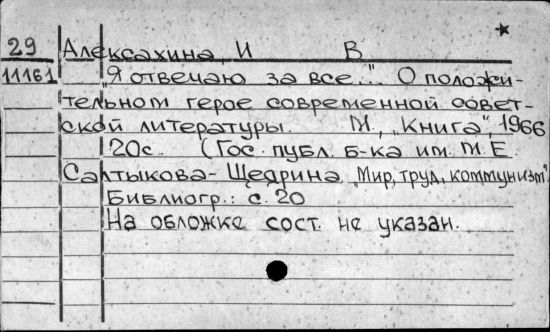 29 Алексахина, И В
11161 "Я отвечаю за все..." О положи-
тельном герое современной совет-
ской литературы. М., "Книга", 1966
20с. (Гос. публ. б-ка им. М.Е.
Салтыкова-Щедрина. "Мир, труд, коммунизм"
Библиогр.: с. 20
На обложке сост. не указан.